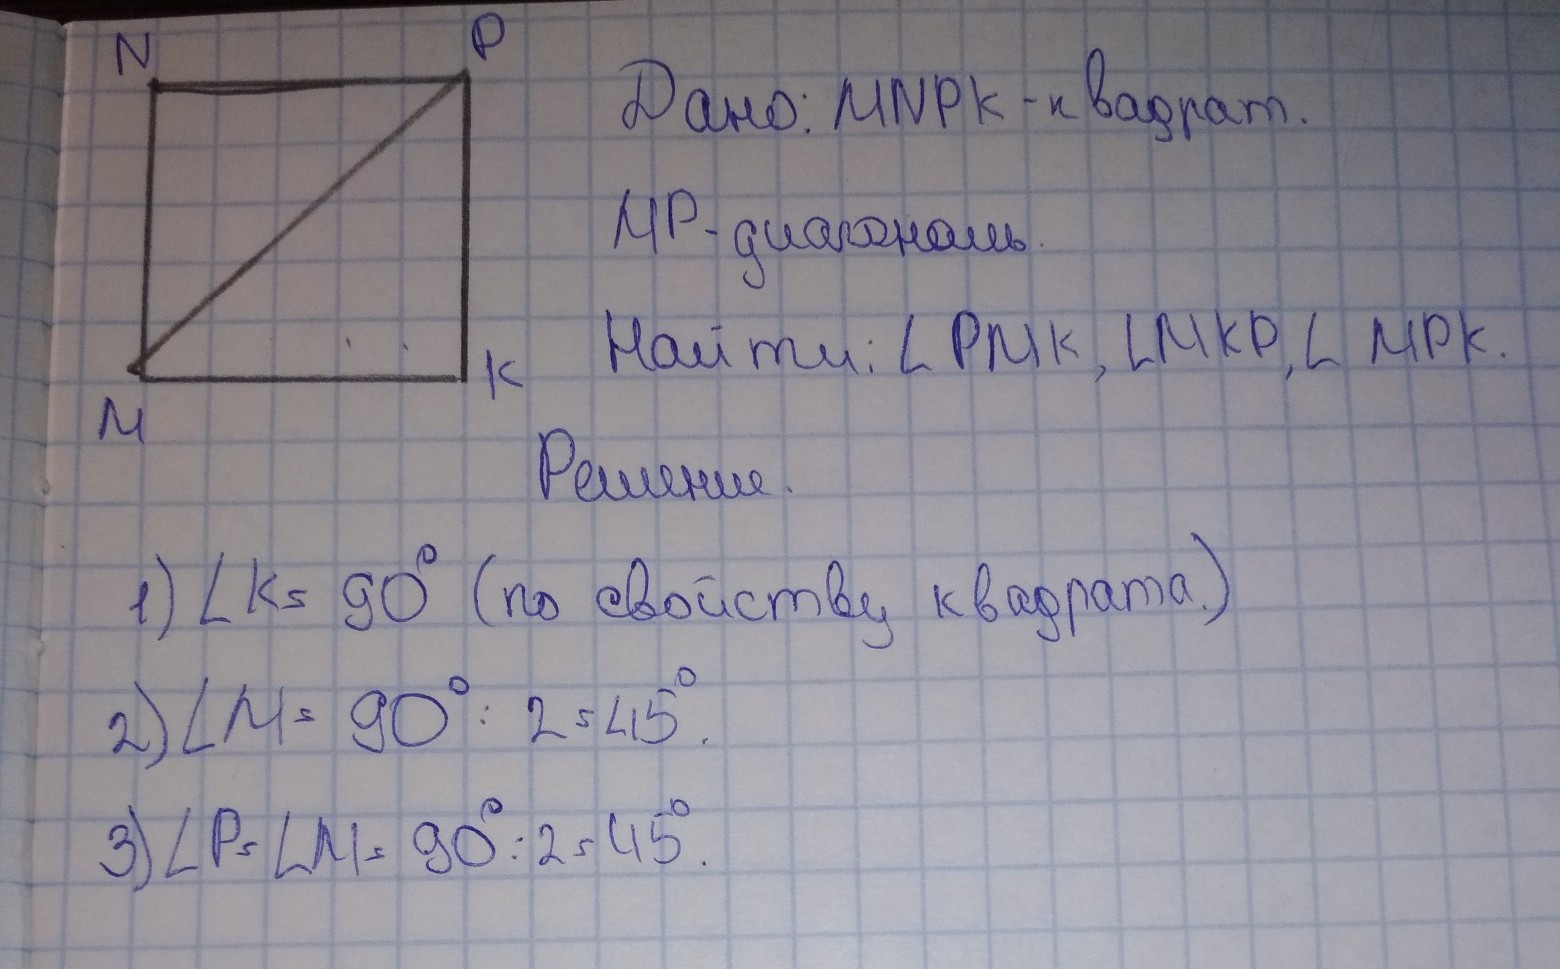 N P
Дано: MNPK - квадрат.
MP - диагональ.
Найти: ∠ PMK, ∠MKP, ∠ MPK.
K
M
Решение.
1) ∠K = 90° (по свойству квадрата.)
2) ∠M = 90° : 2 = 45°.
3) ∠P = ∠M = 90° : 2 = 45°.